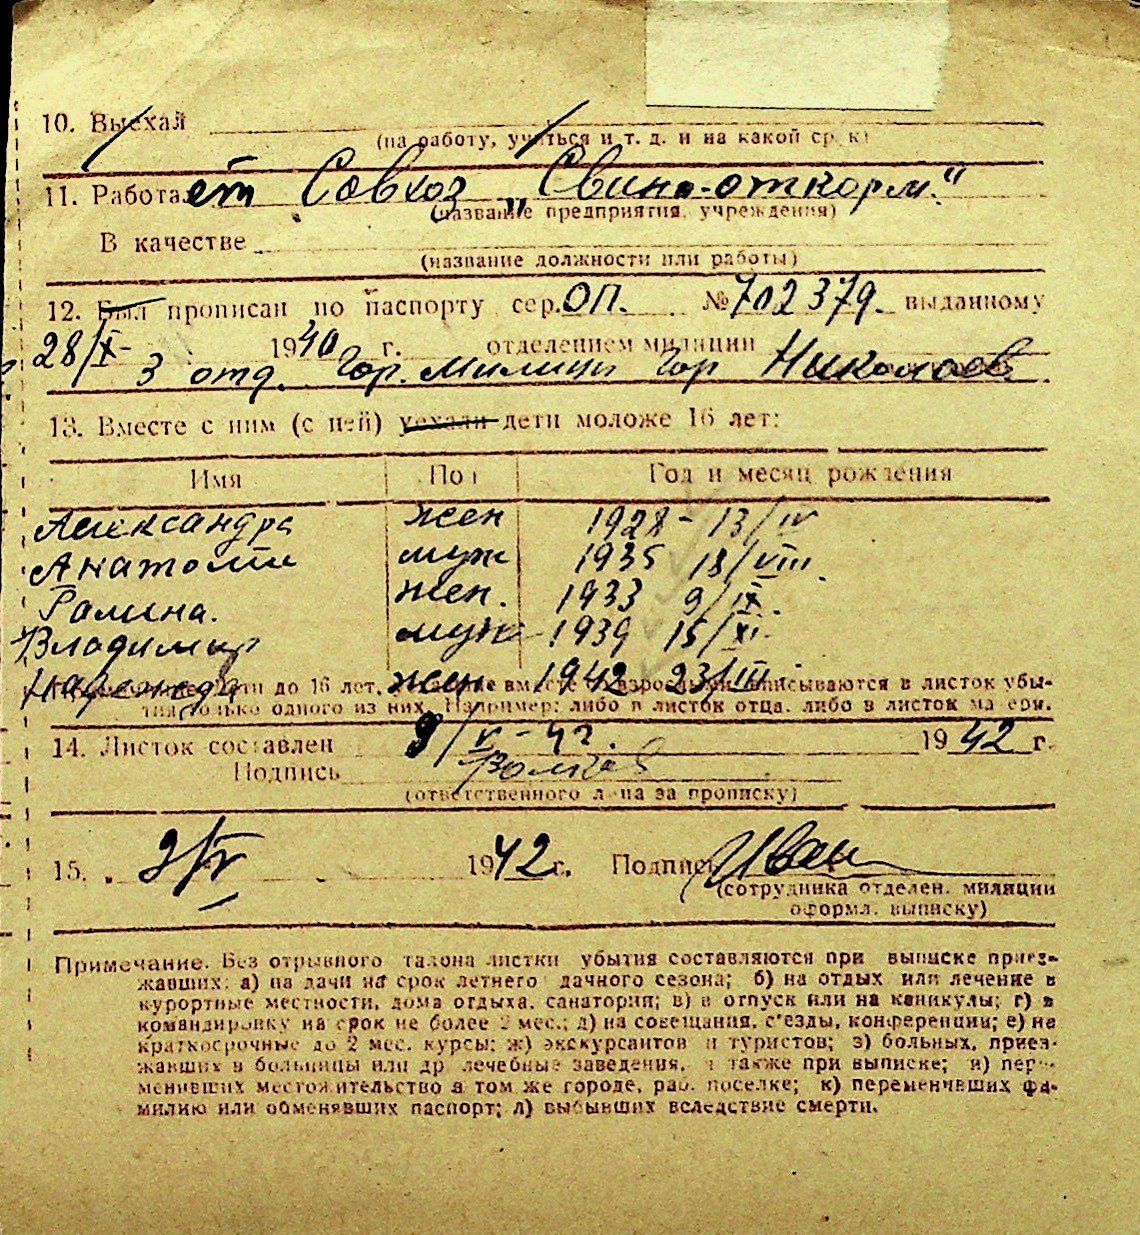 10. Выехал
(на работу, учиться и т. д. и на какой срок)
11. Работает Совхоз „Свино-откорм."
(название предприятия, учреждения)
В качестве
(название должности или работы)
12. Был прописан по паспорту сер. ОП. № 702379. выданному
28/X- 1940 г. отделением милиции
3 отд. Гор. милиции гор Николаев.
13. Вместе с ним (с ней) уехали дети моложе 16 лет:
Имя Пол Год и месяц рождения
Александра жен 1928 - 13/IV
Анатолий муж 1935 18/VIII.
Галина. жен. 1933 9/IX.
Владимир муж 1939 15/XI.
Надежда жен 1942 23/III
Примечание. Дети до 16 лет, уехавшие вместе со взрослыми, вписываются в листок убы-
тия только одного из них. Например: либо в листок отца, либо в листок матери.
14. Листок составлен 9/V-42. 1942 г.
Подпись
(ответственного лица за прописку)
15. 9/V 1942 г. Подпись Иван
(сотрудника отделен. милиции
оформл. выписку)
Примечание. Без отрывного талона листки убытия составляются при выписке приез-
жавших: а) на дачи на срок летнего дачного сезона; б) на отдых или лечение в
курортные местности, дома отдыха, санатории; в) в отпуск или на каникулы; г) в
командировку на срок не более 2 мес.; д) на совещания, с'езды, конференции; е) на
краткосрочные до 2 мес. курсы; ж) экскурсантов и туристов; з) больных, приез-
жавших в больницы или др. лечебные заведения, а также при выписке; и) пере-
менивших местожительство в том же городе, раб. поселке; к) переменивших фа-
милию или обменявших паспорт; л) выбывших вследствие смерти.